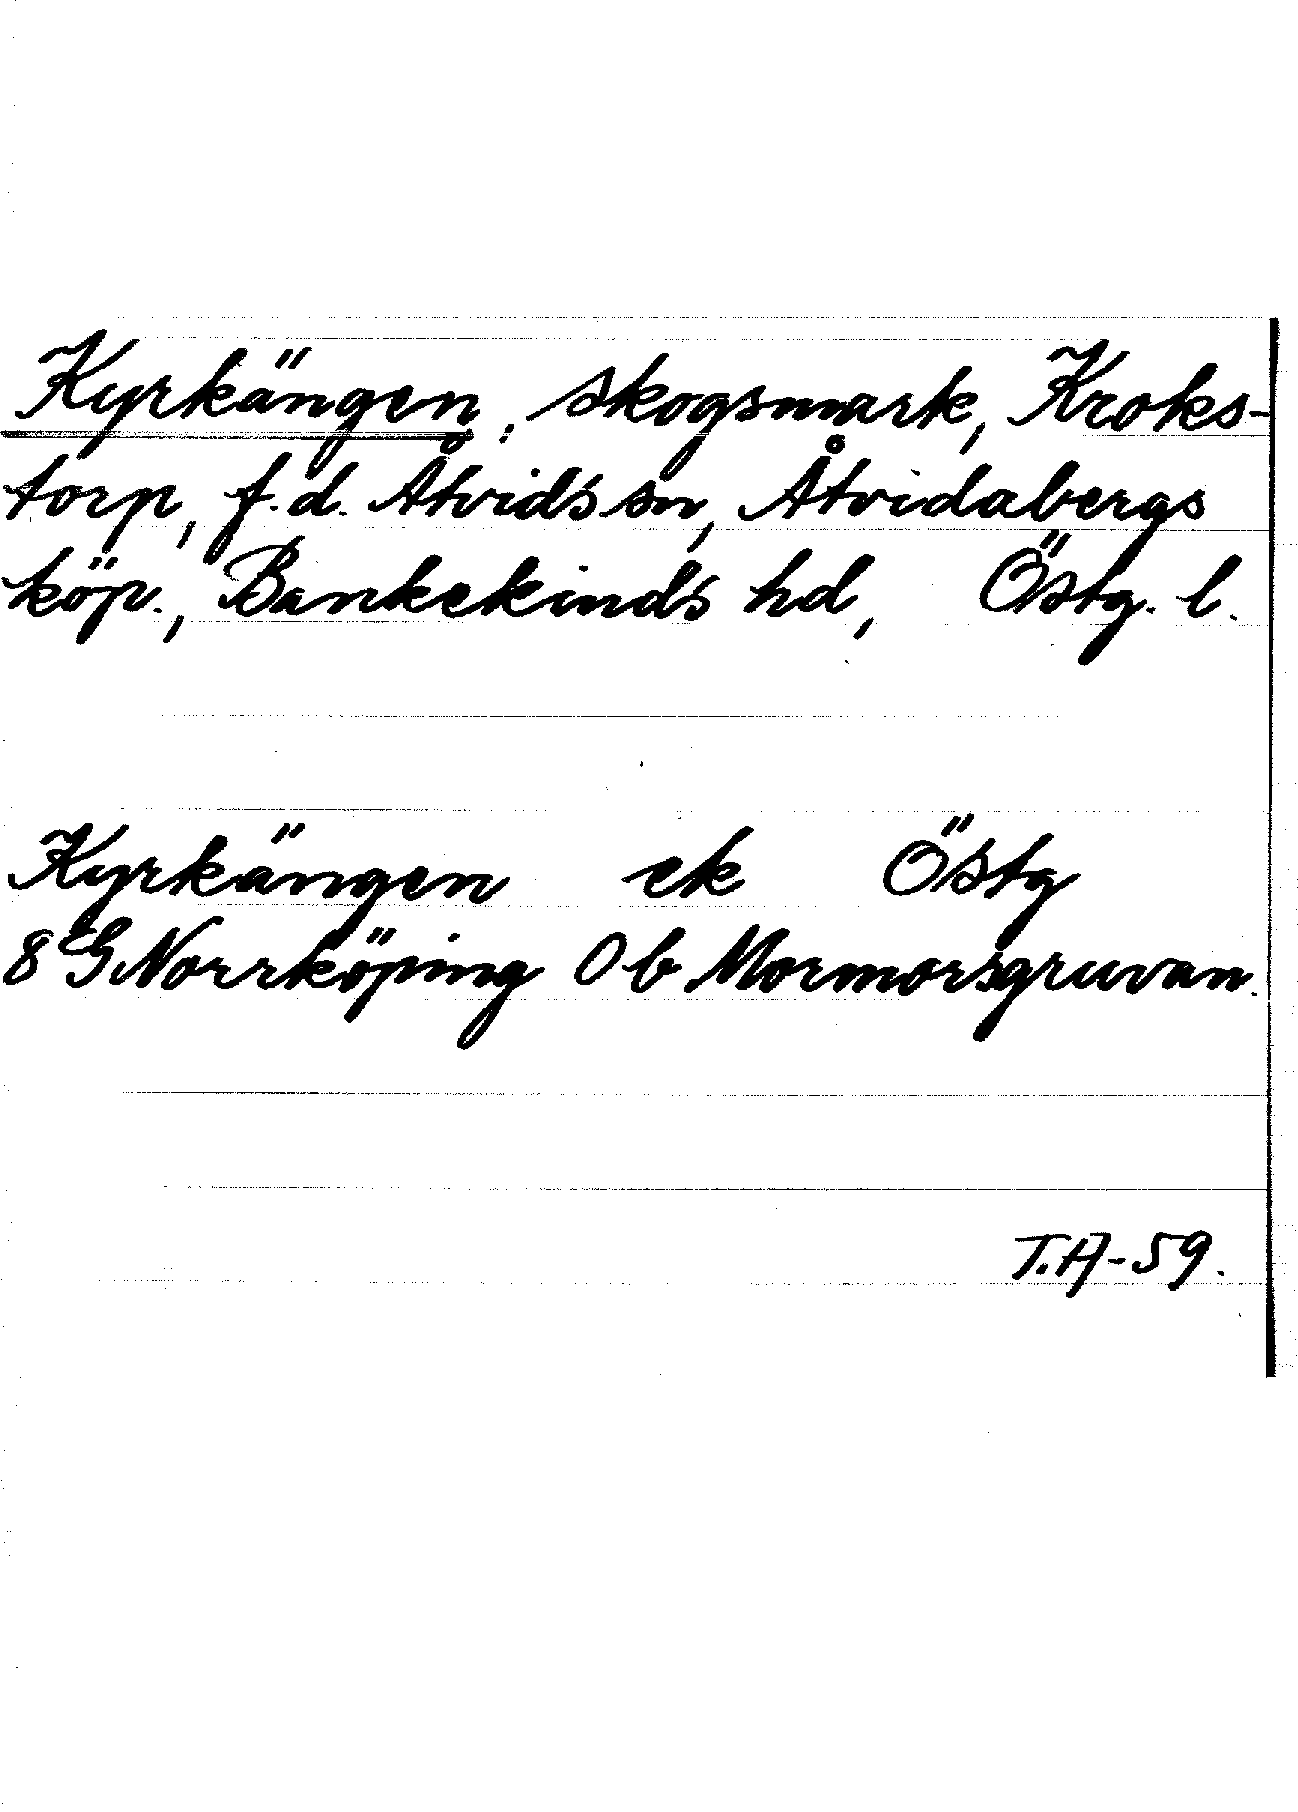 Kyrkängen, skogsmark, Kroks-
torp, f.d. Åtvids sn, Åtvidabergs
köp., Bankekinds hd, Östg. l.
Kyrkängen ek Östg
8 G Norrköping 0 b Mormorsgruvan.
T.A-59.